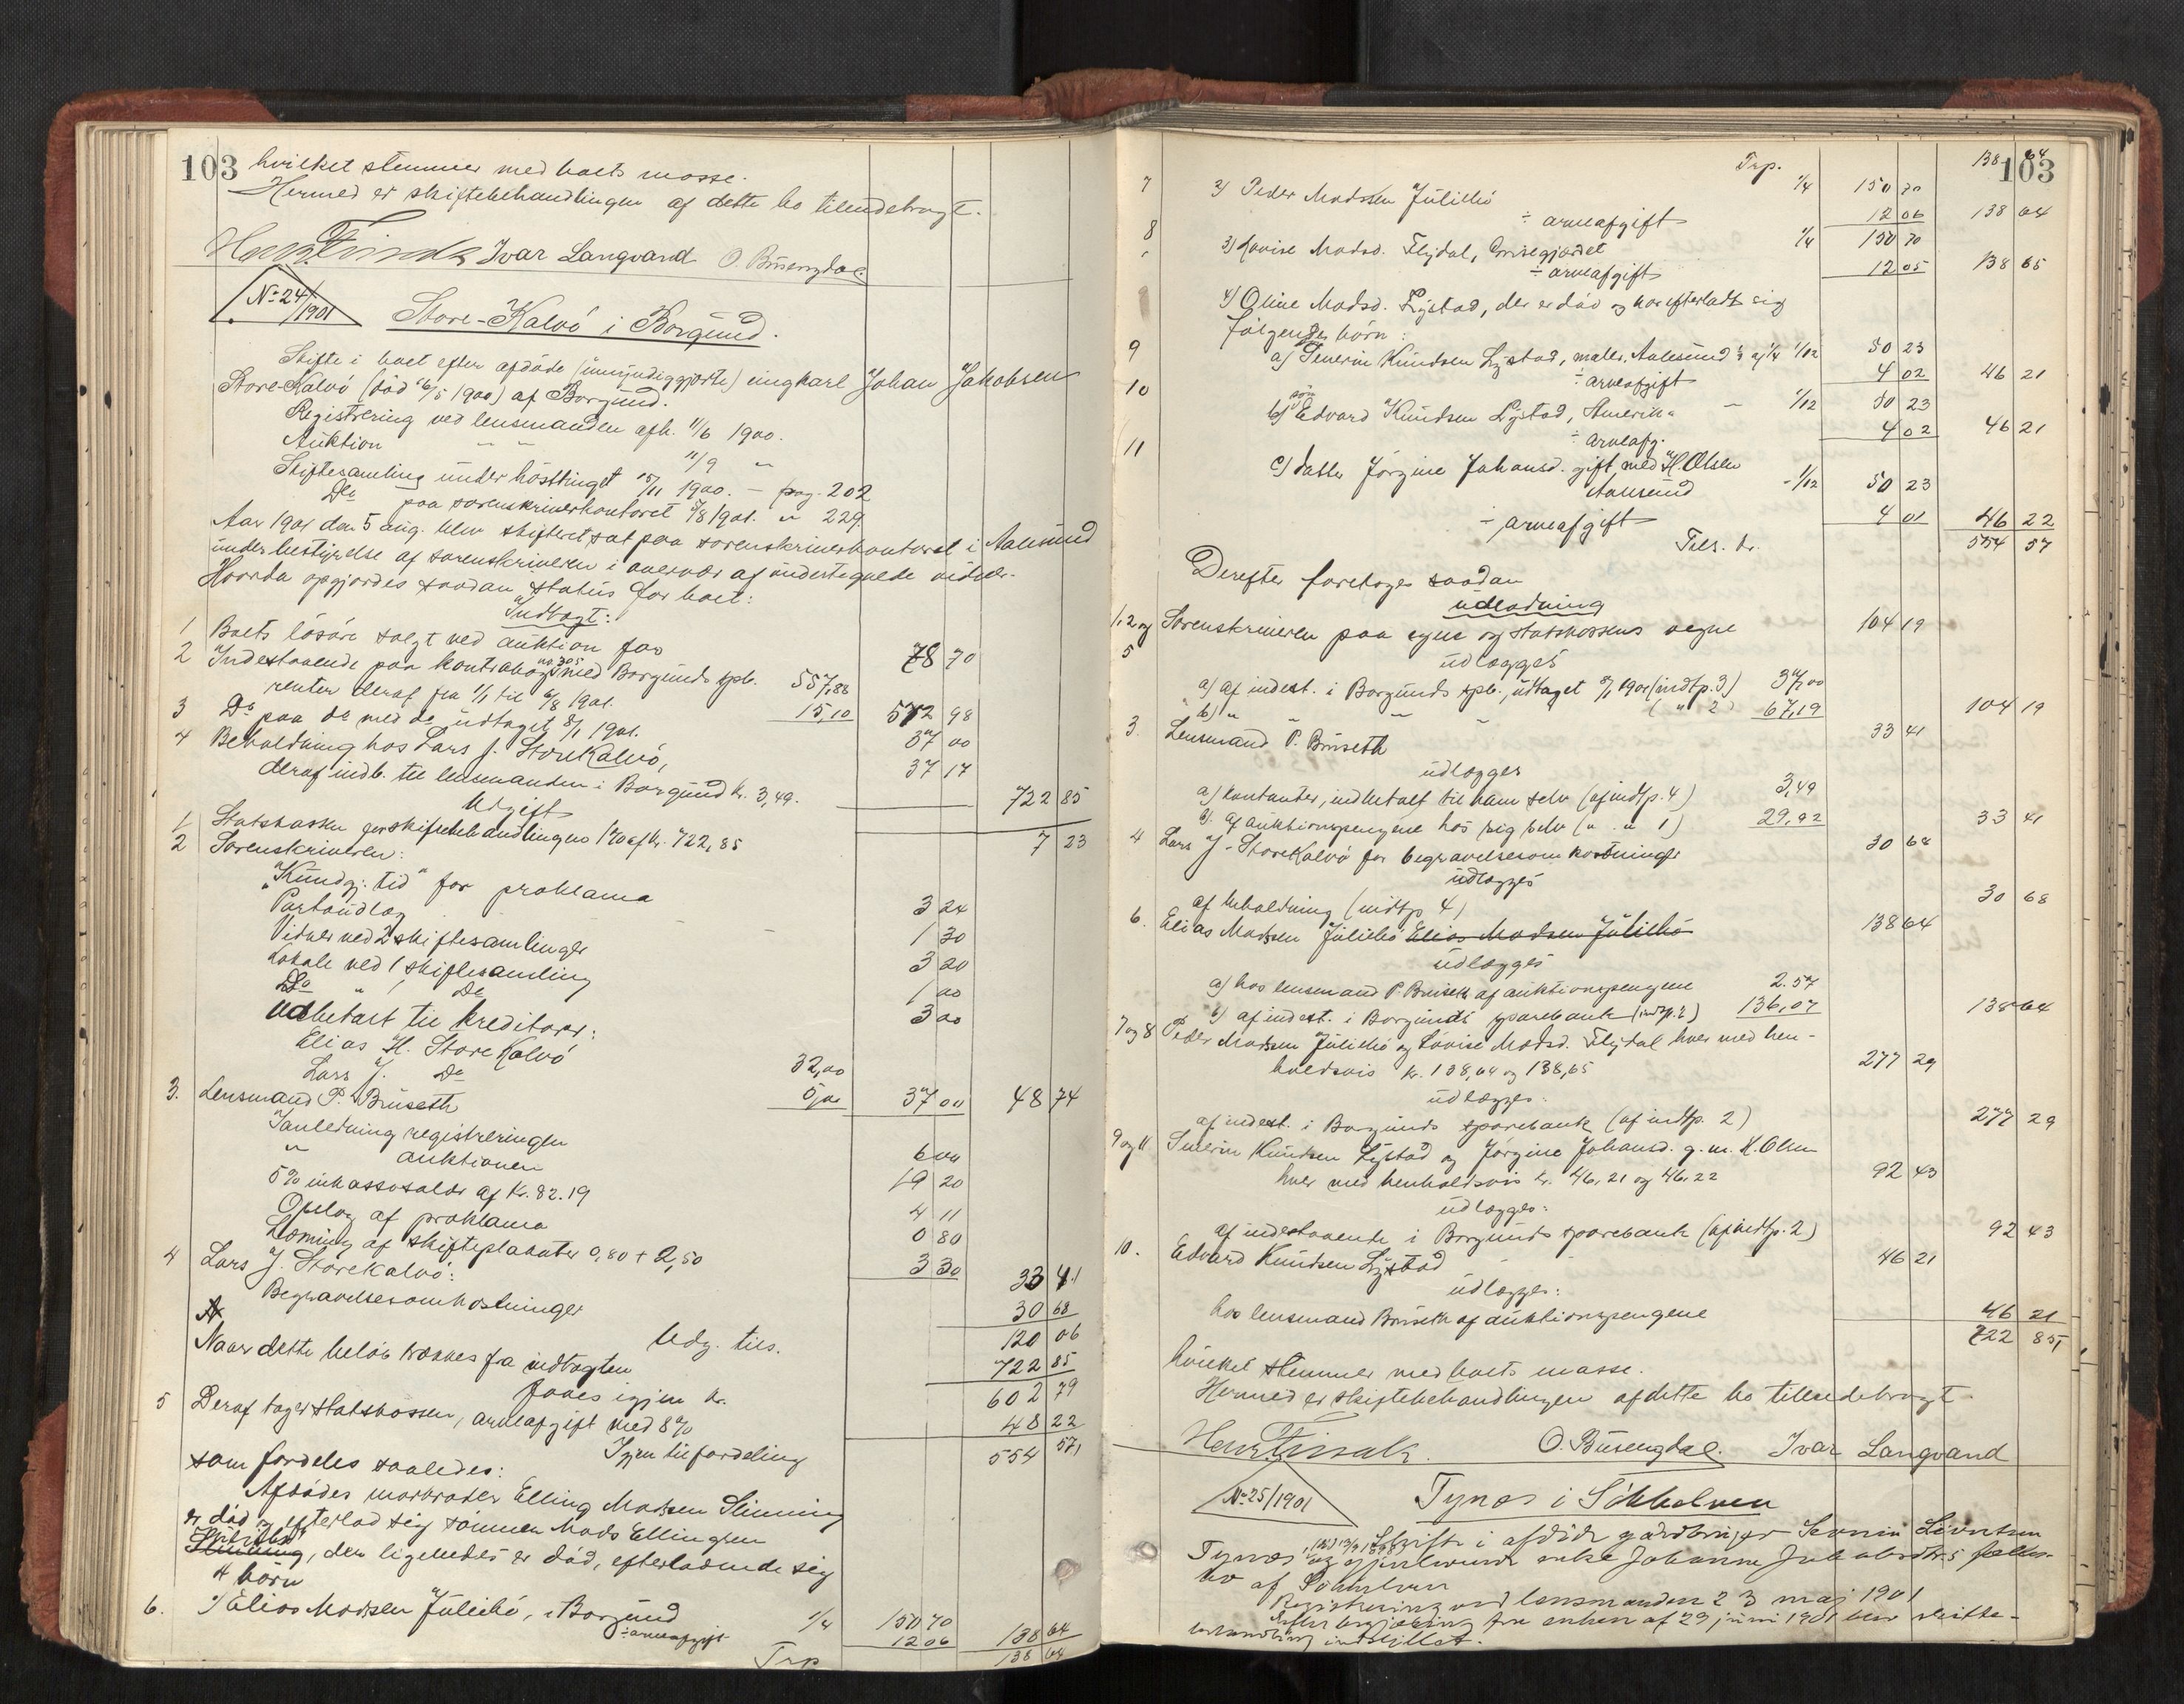 103 hvilket stemmer med boets masse.
Hermed er skiftebehandlingen af dette bo tilendebragt.
Ivar Langvand O. Busengdal
No 24/1901
Store-Kalvö i Borgund.
Skifte i boet efter afdöde (umyndiggjorte) ungkarl Johan Jakobsen
Store-Kalvö (död 16/5 1900) af Borgund.
Registrering ved lensmanden afh. 11/6 1900.
Auktion " " 11/9 "
Skiftesamling under hösttinget 15/11 1900. — pag. 202
Do paa sorenskriverkontoret 5/8 1901. " 229.
Aar 1901 den 5 aug. blev skifteret sat paa sorenskriverkontoret i Aalesund
under bestyrelse af sorenskriveren i overvær af undertegnede vidner.
Hvorda opgjordes saadan status for boet:
Indtægt:
1 Boets lösöre solgt ved auktion for 78 70
2 Indestaaende paa kontrabog no 305 med Borgunds spb. 557,88
renter deraf fra 1/1 til 6/8 1901. 15,10 572 98
3 Do paa do med do udtaget 8/1 1901. 37 00
4 Beholdning hos Lars J. StoreKalvö, 37 17
deraf indb. til lensmanden i Borgund kr. 3,49. 722 85
Udgift
1 Statskassen for skiftebehandlingen 1% af kr. 722,85 7 23
2 Sorenskriveren:
"Kundgj. tid" for proklama 3 24
Portoudlæg 1 30
Vidner ved 2 skiftesamlinger 3 20
Lokale ved 1 skiftesamling 1 00
Do " 1 Do 3 00
Udbetalt til kreditorer:
Elias H. StoreKalvö 32,00
Lars J. Do 5,00 37 00 48 74
3. Lensmand P. Bruseth
I anledning registreringen 6 00
" auktionen 19 20
5% inkassosalær af kr. 82.19 4 11
Opslag af proklama 0 80
Lömning af skifteplakater 0,80 + 2,50 3 30 33 41
4 Lars J. StoreKalvö:
Begravelsesomkostninger 30 68
Udg. tils. 120 06
Naar dette belöb trækkes fra indtægten 722 85
faaes igjen kr. 602 79
5 Deraf tager statskassen, arveafgift med 8% 48 22
Igjen til fordeling 554 57
som fordeles saaledes:
Afdödes morbroder Elling Madsen Slinning
er död og efterlod sig sönnen Mads Ellingsen
Slinning, der ligeledes er död, efterladende sig
4 börn
6. 1) Elias Madsen Juliebö, i Borgund 1/4 150 70
÷ arveafgift 12 06 138 64
Trp 138 64
Trp. 138 64
103
7 2) Peder Madsen Juliebö 1/4 150 70
÷ arveafgift 12 06 138 64
8 3) Lovise Madsd. Flydal, Grisegjerdet 1/4 150 70
÷ arveafgift 12 05 138 65
4) Oline Madsd. Lystad, der er död og har efterladt sig
fölgende börn:
9 a) Severin Knudsen Lystad, maler, Aalesund 1/3 af 1/4 1/12 50 23
÷ arveafgift 4 02 46 21
10 b) sön Edvard Knudsen Lystad, Amerika — 1/12 50 23
÷ arveafg. 4 02 46 21
11 c) datter Jörgine Johansd. gift med H. Olsen
Aalesund - 1/12 50 23
÷ arveafgift 4 01 46 22
Tils. kr. 554 57
Derefter foretoges saadan
udlodning
1, 2 og 5 Sorenskriveren paa egne og statskassens vegne 104 19
udlægges
a) af indest. i Borgunds spb., udtaget 8/1 1901 (indtp. 3) 37,00
b) " " " " ( " 2) 67,19 104 19
3. Lensmand P. Bruseth 33 41
udlægges
a) kontanter, indbetalt til ham selv (af indtp. 4) 3,49
b. af auktionspengene hos sig selv ( " " 1) 29,92 33 41
4 Lars J. StoreKalvö for begravelsesomkostninger 30 68
udlægges
af beholdning (indtp 4) 30 68
6. Elias Madsen Juliebö Elias Madsen Juliebö 138 64
udlægges
a) hos lensmand P. Bruseth af auktionspengene 2.57
b) af indest. i Borgunds sparebank (indtp. 2) 136,07 138 64
7 og 8 Peder Madsen Juliebö og Lovise Madsd. Flydal hver med hen-
holdsvis kr. 138,64 og 138,65 277 29
udlægges:
af indest. i Borgunds sparebank (af indtp. 2) 277 29
9 og 11 Severin Knudsen Lystad og Jörgine Johansd. g. m. H. Olsen
hver med henholdsvis kr. 46,21 og 46,22 92 43
udlægges:
af indestaaende i Borgunds sparebank (af indtp. 2) 92 43
10. Edvard Knudsen Lystad 46 21
udlægges:
hos lensmand Bruseth af auktionspengene 46 21
722 85
hvilket stemmer med boets masse.
Hermed er skiftebehandlingen af dette bo tilendebragt.
O. Busengdal. Ivar Langvand
No 25/1901
Tynes i Sökkelven
Skifte i afdöde gaardbruger Severin Sivertsen
Tynes og gjenlevende enke Johanne Jakobsdtrs fælles-
bo af Sökkelven
Registrering ved lensmanden 23 maj 1901
Efter begjæring fra enken af 29 juni 1901 blev skifte-
behandling indstillet.